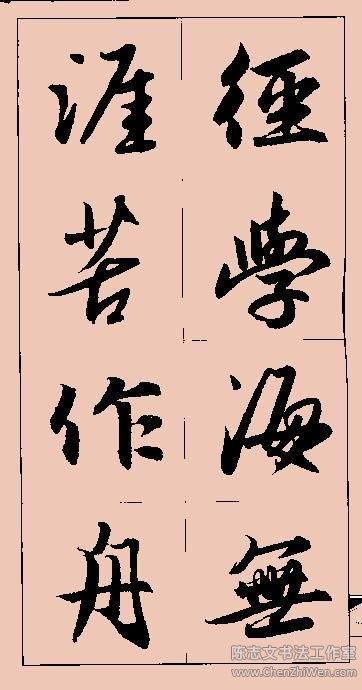 徑學海無
涯苦作舟
陈志文书法工作室
www.ChenZhiWen.com